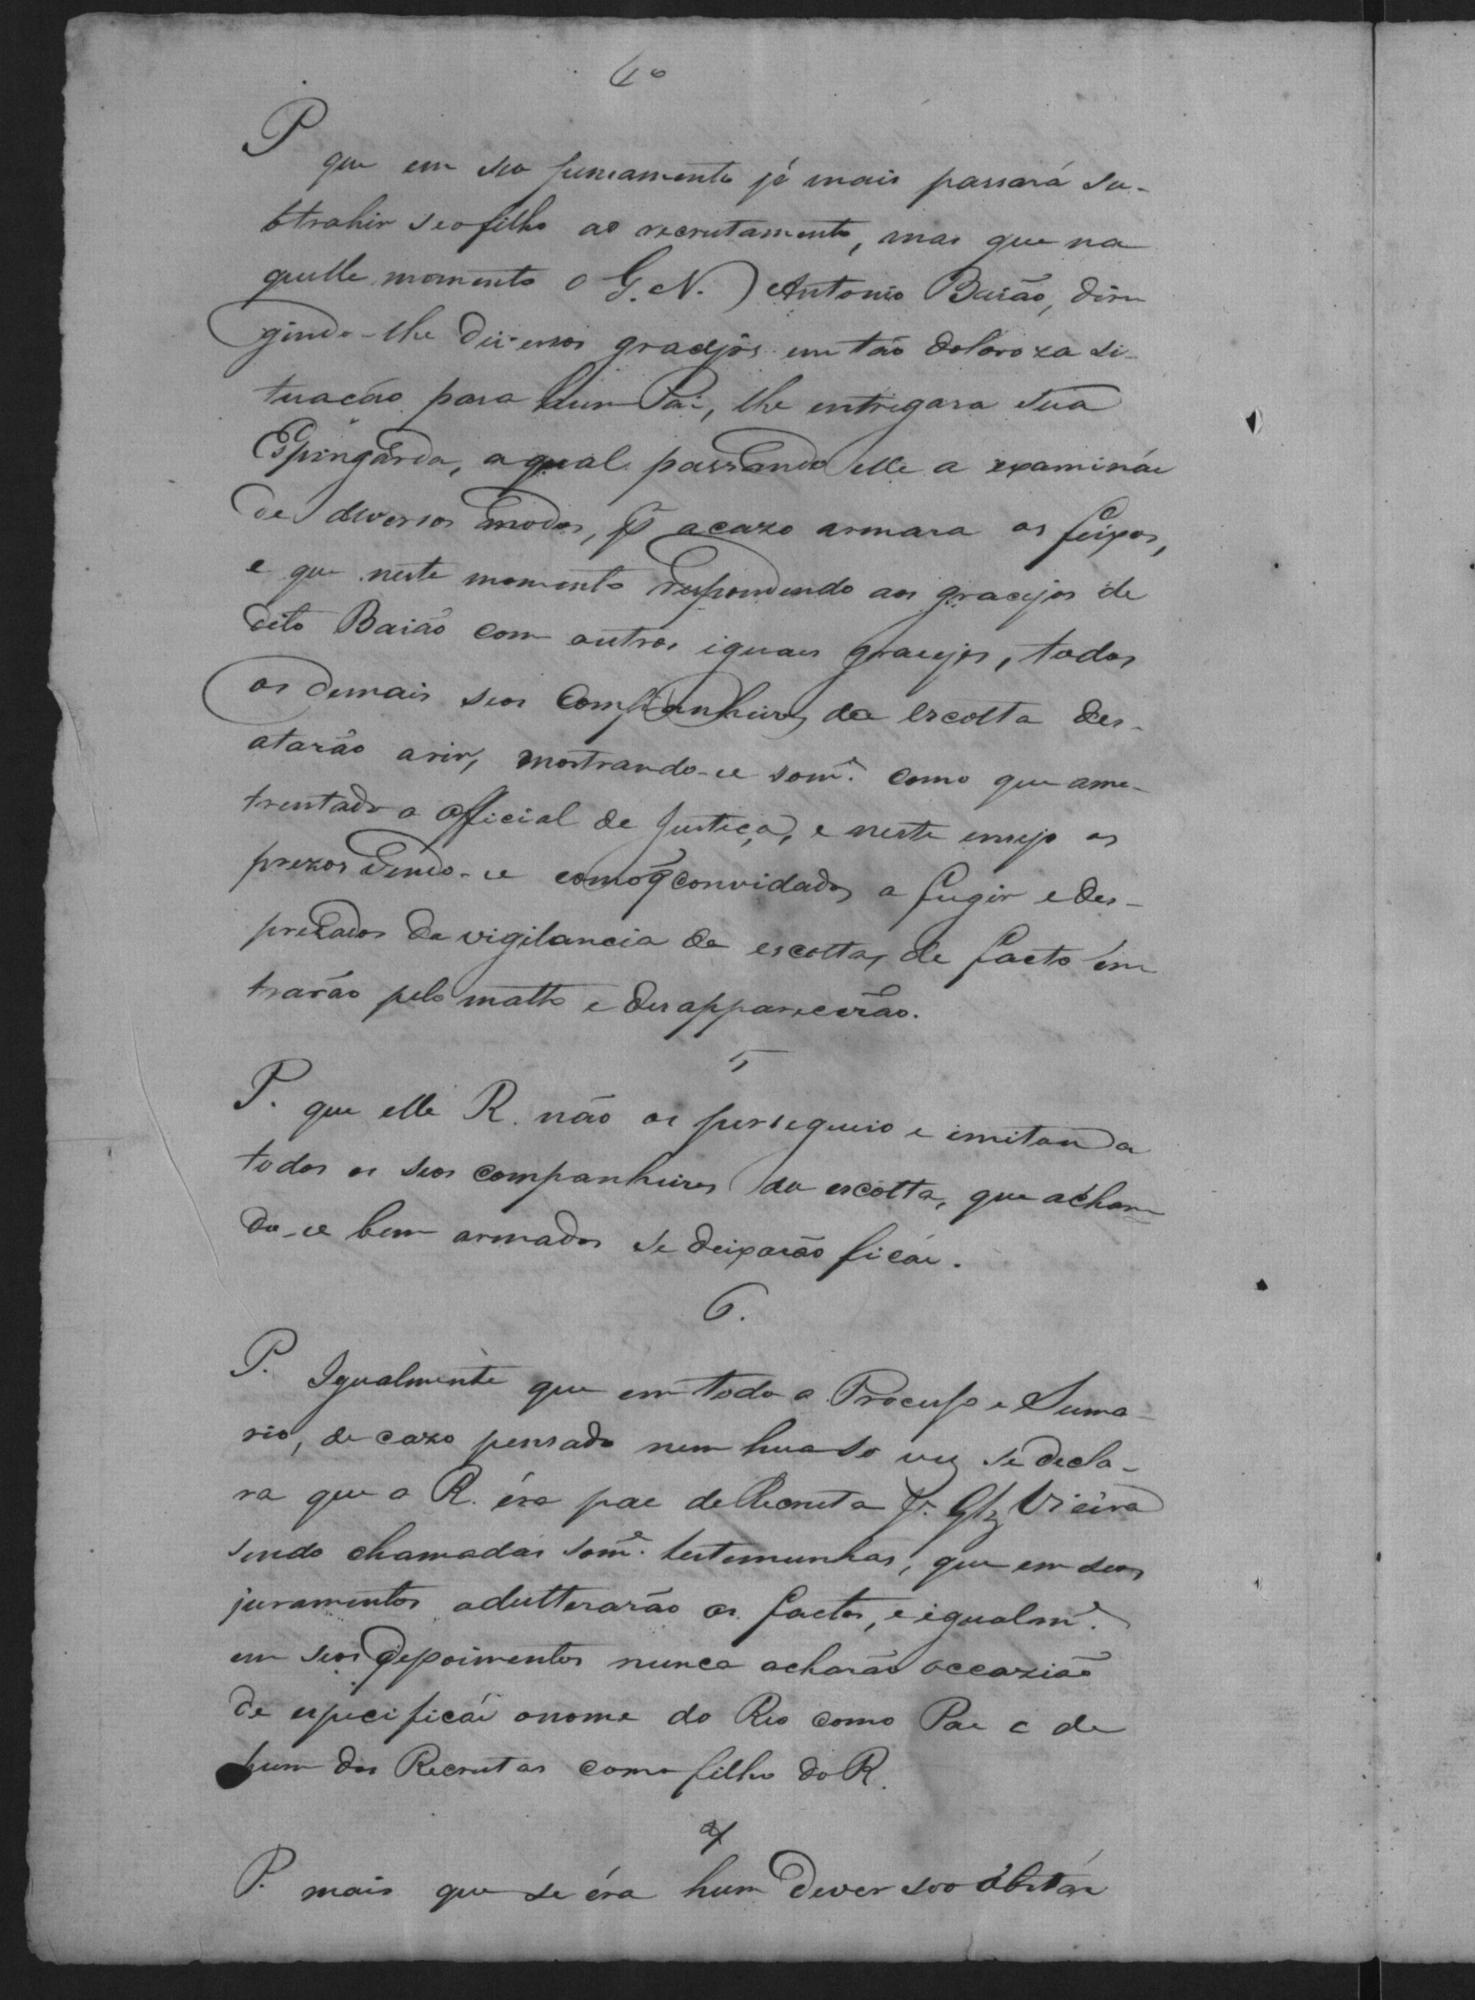 4º
P que em seo pensamento já mais passará su-
btrahir seo filho ao recrutamento, mas que na
quelle momento o G. N. Antonio Baião, diri
gindo-lhe diversos gracejos em tão doloroza si-
tuacão para hum Pai, lhe entregara sua
Espingarda, aqual passando elle a examinár
de diversos modos, p acazo armara os feixos,
e que neste momento respondendo aos gracejos de
dito Baião com outros iguaes gracejos, todos
os demais seos Companheiros da escolta des-
atarão arir, mostrando-se somᵉ. como que ame-
trentado o Official de Justiça, e neste ensejo os
prezos vendo-se como q̃ convidados a fugir e des-
prezados da vigilancia da escolta, de facto en
trarão pelo matto e desapparecerão.
5
P. que elle R. não os perseguio e imitando a
todos os seos companheiros da escolta, que achan
do-se bem armados se deixarão ficár.
6.
P. Igualmente que em todo o Processo e Suma-
rio, de cazo pensado nem hua só vez se decla-
ra que o R. éra pae do Recruta Glz Vieira
sendo chamadas somᵉ. testemunhas, que em seos
juramentos adulterarão os factos, e igualmᵉ.
em seos depoimentos nunca acharão occazião
de especificár o nome do Reo como Pae e de
hum dos Recrutas como filho do R.
7
P. mais que se éra hum dever seo obstár